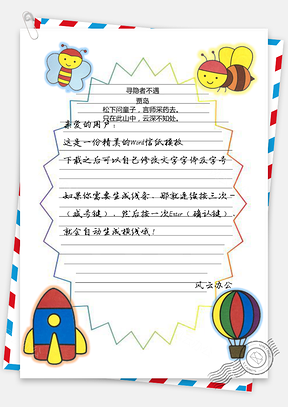 寻隐者不遇
贾岛
松下问童子，言师采药去。
只在此山中，云深不知处。
亲爱的用户：
这是一份精美的Word信纸模板
下载之后可以自己修改文字字体及字号
如果你需要生成线条，那就连续按三次
（减号键），然后按一次Enter（确认键），
就会自动生成横线哦！
风云办公